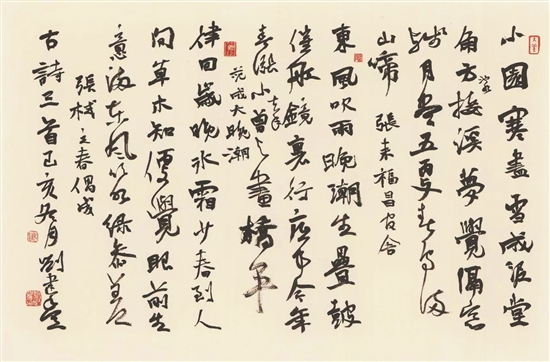 小園寒盡雪成泥堂
角方池水接溪夢覺隔窗
殘月盡五更春鳥滿
山啼 張耒福昌官舍
東風吹雨晚潮生疊鼓
催船鏡裏行底事今年
春漲小去年曾與畫橋平
范成大晚潮
律回歲晚冰霜少春到人
間草木知便覺眼前生
意滿東風吹水綠參差
張栻立春偶成
古詩三首己亥冬月劉建